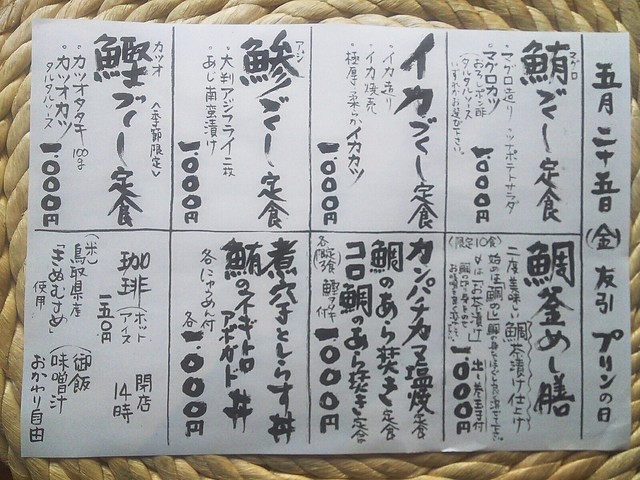 五月二十五日(金)友引 プリンの日
マグロ
鮪づくし定食
・マグロ造り ・ツナポテトサラダ
・マグロカツ
おろしポン酢
タルタルソース
いずれかお選び下さい。
一、000円
イカづくし定食
・イカ造り
・イカ焼売
・極厚柔らかイカカツ
一、000円
アジ
鯵づくし定食
・大判アジフライ二枚
・あじ南蛮漬け
一、000円
カツオ
鰹づくし定食
<季節限定>
・カツオタタキ 100g
・カツオカツ
タルタルソース
一、000円
鯛釜めし膳
二度美味しい鯛茶漬け仕上げ
(限定10食)
出し巻玉子付
一、000円
カンパチカマ塩焼き定食
鯛のあら焚き定食
コロ鯛のあら焚き定食
各限定5食
一、000円
煮穴子としらす丼
鮪のネギトロアボガド丼
各にゅうめん付
各一、000円
珈琲 ホット
アイス
一五0円
開店
14時
(米)鳥取県産
「きぬむすめ」
使用
(御飯
味噌汁)
おかわり自由